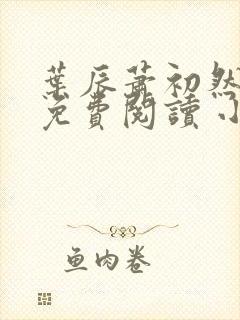 葉辰蕭初然
免費閱讀小
鱼肉卷